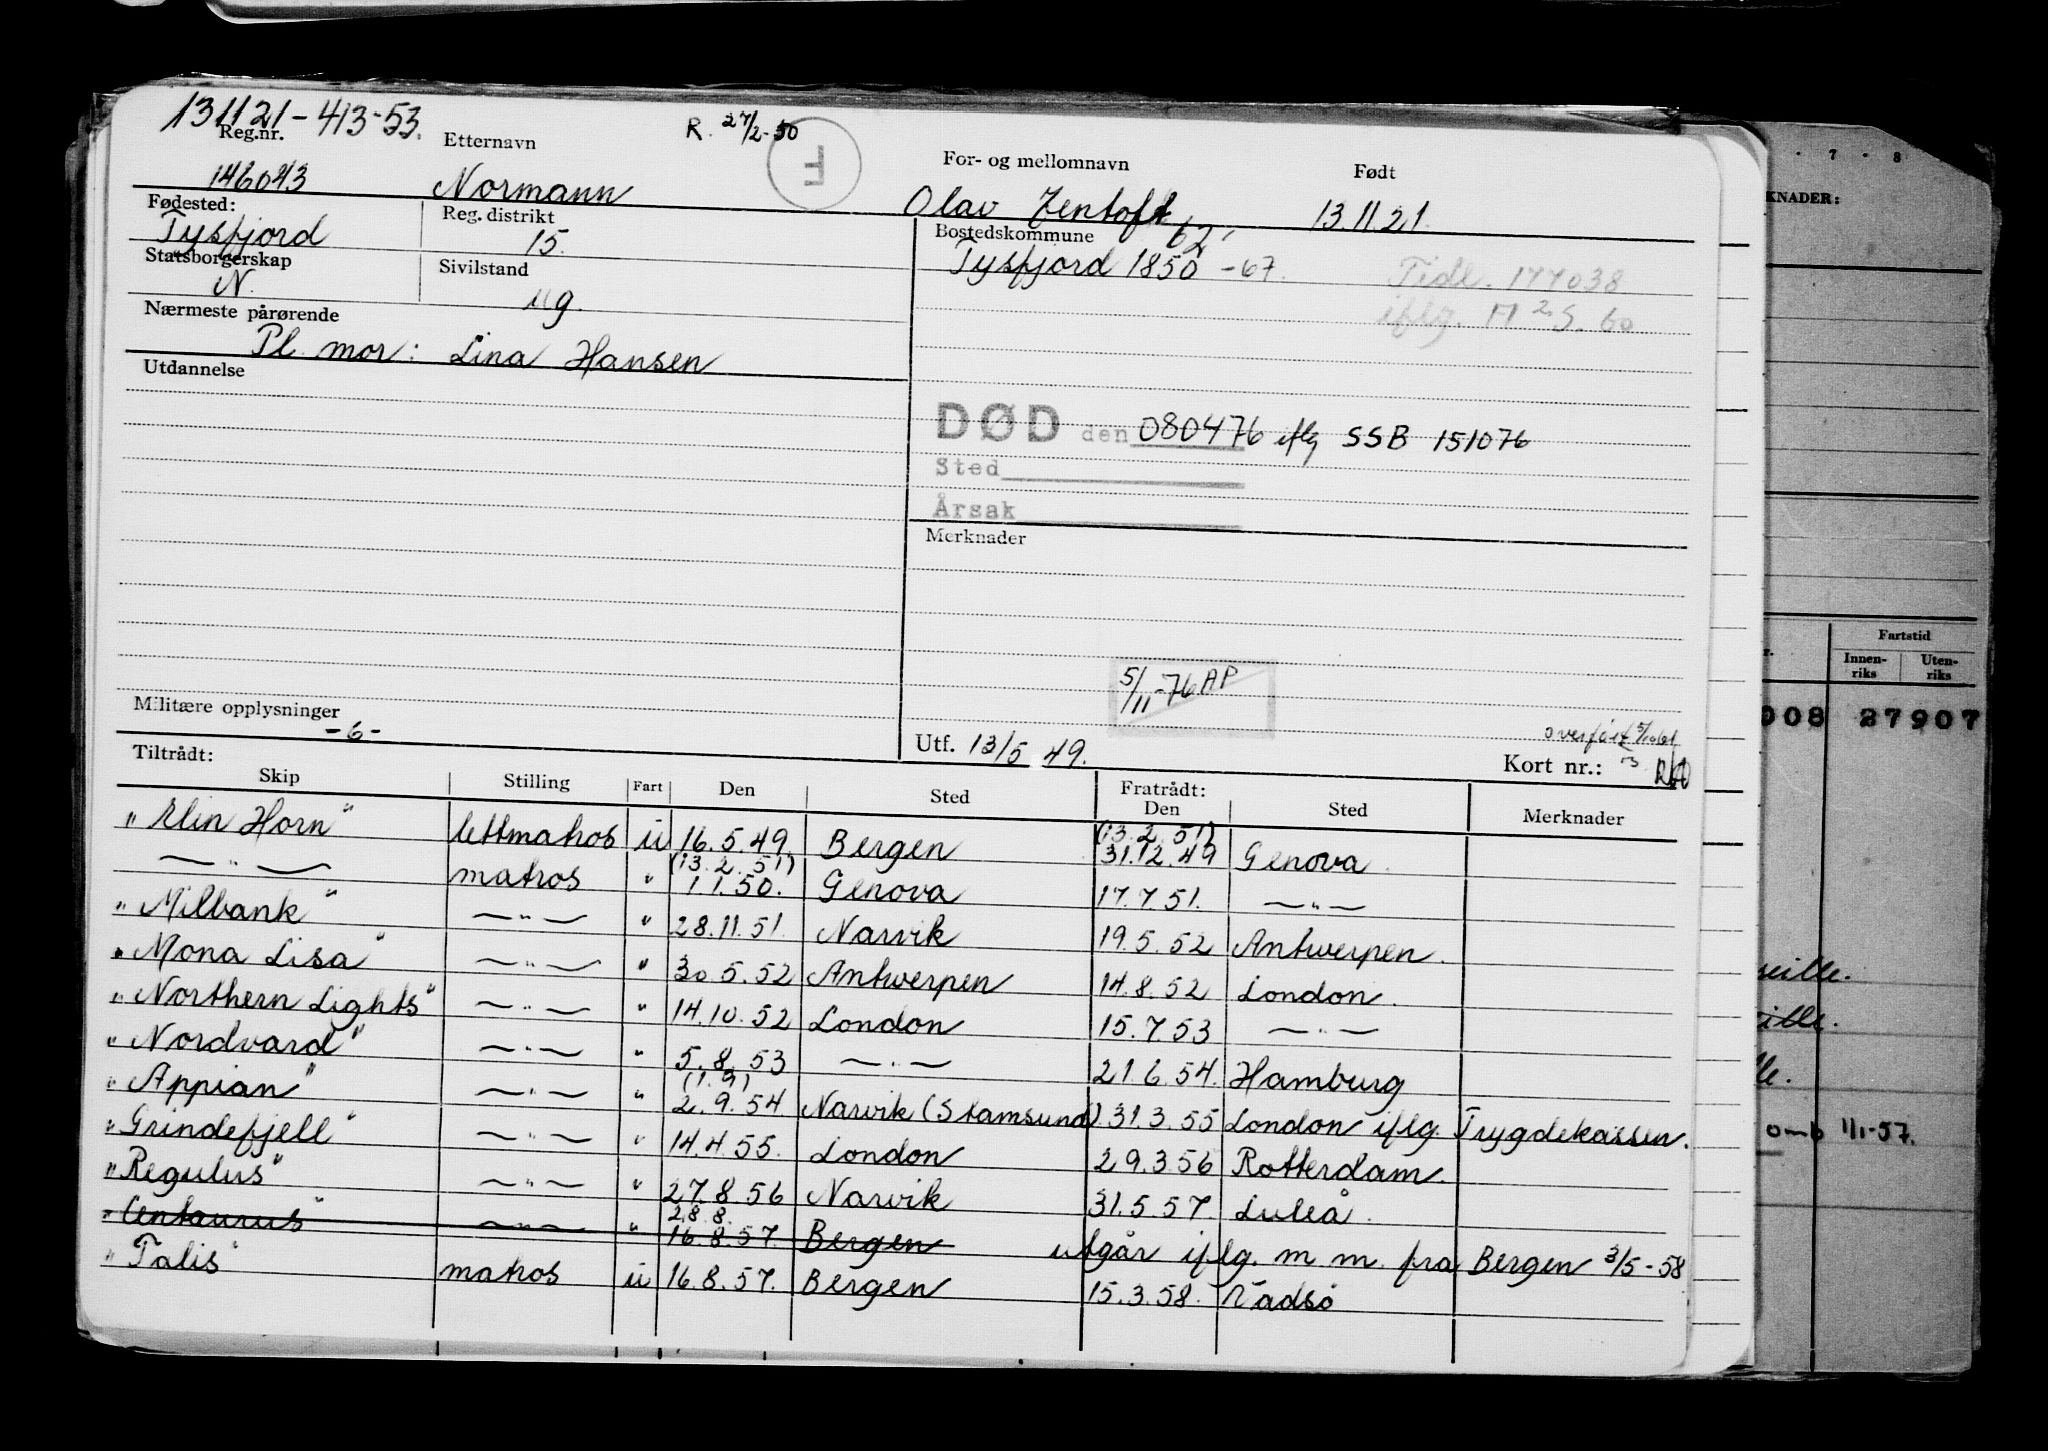 131121-413-53.
R. 27/2-50
F
Reg.nr. Etternavn For- og mellomnavn Født
146043 Normann Olav Zentoft 13.11.21.
Fødested: Reg. distrikt Bostedskommune 62'
Tysfjord 15. Tysfjord 1850 -67.
Statsborgerskap Sivilstand
N. ug.
Tidl. 177038
iflg. M 2 S. 60
Nærmeste pårørende
Pl. mor: Lina Hansen
Utdannelse
DØD den 080476 iflg SSB 151076
Sted
Årsak
Merknader
5/11-76 AP
Militære opplysninger
-6-
Utf. 13/5 49.
overført
Kort nr.:
Tiltrådt: Fratrådt:
Skip Stilling Fart Den Sted Den Sted Merknader
"Elin Horn" lettmatros u 16.5.49 Bergen (13.2.51) 31.12.49 Genova.
— " — matros " (13.2.51) 1.1.50. Genova 17.7.51. — " —
"Milbank" — " — " 28.11.51. Narvik 19.5.52 Antwerpen.
"Mona Lisa" — " — " 30.5.52 Antwerpen 14.8.52 London.
"Northern Lights" — " — " 14.10.52 London 15.7.53 — " —
"Nordvard" — " — " 5.8.53 — " — 21.6.54. Hamburg
"Appian" — " — " (1.9) 2.9.54 Narvik (Stamsund) 31.3.55 London iflg. Trygdekassen.
"Grindefjell" — " — " 14.4.55. London 29.3.56 Rotterdam.
"Regulus" — " — " 27.8.56 Narvik 31.5.57. Luleå.
"Centaurus" — " — " 28.8. 16.8.57. Bergen utgår iflg. m.m. fra Bergen 3/5-58
"Talis" matros u 16.8.57. Bergen 15.3.58. Vadsø
7 . 8
KNADER:
Fartstid
r. Innen-riks Uten-riks
008 27907
eille.
ille.
lle.
omb 1/1-57.